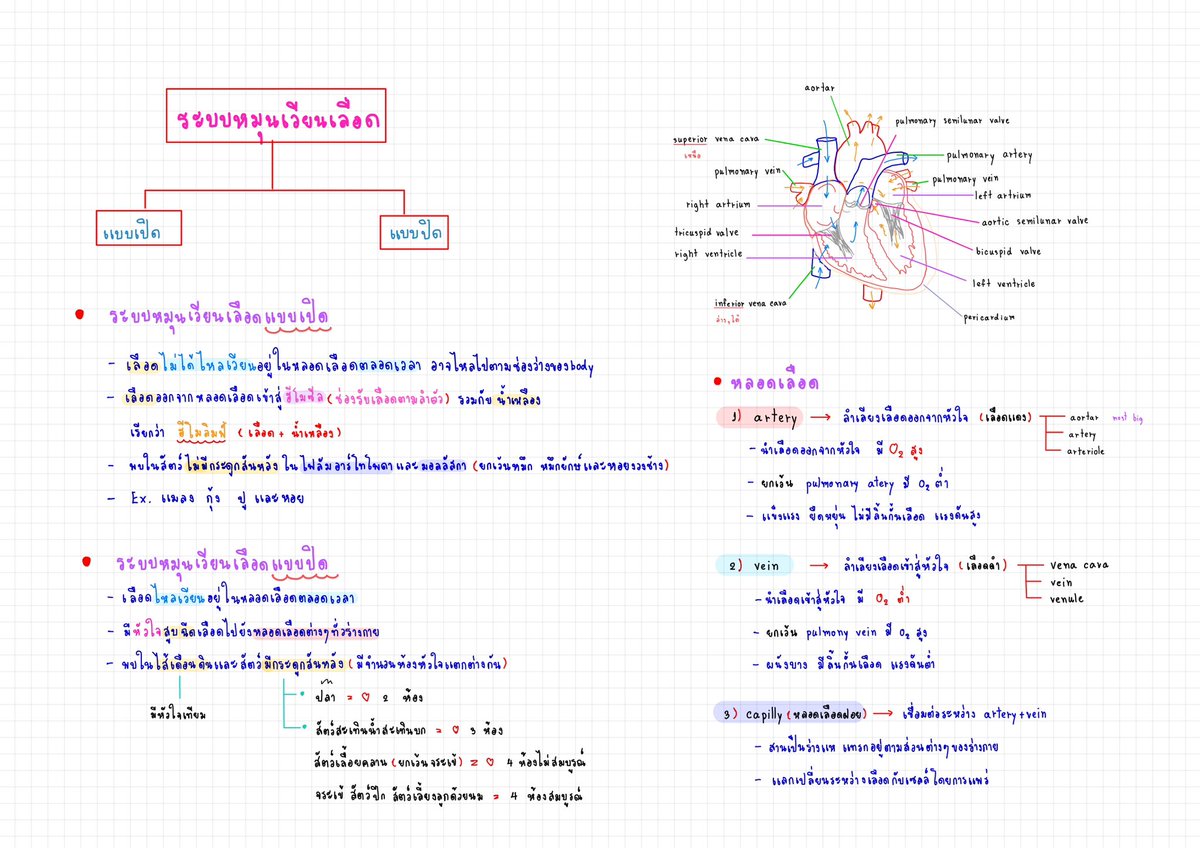 ระบบหมุนเวียนเลือด
แบบเปิด
แบบปิด
ระบบหมุนเวียนเลือดแบบเปิด
- เลือดไม่ได้ไหลเวียนอยู่ในหลอดเลือดตลอดเวลา อาจไหลไปตามช่องว่างของbody
- เลือดออกจากหลอดเลือดเข้าสู่ฮีโมซีล(ช่องรับเลือดตามลำตัว) รวมกับน้ำเหลือง
เรียกว่า ฮีโมลิมฟ์ (เลือด + น้ำเหลือง)
- พบในสัตว์ไม่มีกระดูกสันหลัง ในไฟลัมอาร์โทโพดาและมอลลัสกา (ยกเว้นหมึก หมึกยักษ์และหอยงวงช้าง)
- Ex. แมลง กุ้ง ปู และหอย
ระบบหมุนเวียนเลือดแบบปิด
- เลือดไหลเวียนอยู่ในหลอดเลือดตลอดเวลา
- มีหัวใจสูบฉีดเลือดไปยังหลอดเลือดต่างๆทั่วร่างกาย
- พบในไส้เดือนดินและสัตว์มีกระดูกสันหลัง (มีจำนวนห้องหัวใจแตกต่างกัน)
มีหัวใจเทียม
ปลา = ♡ 2 ห้อง
สัตว์สะเทินน้ำสะเทินบก = ♡ 3 ห้อง
สัตว์เลื้อยคลาน (ยกเว้นจระเข้) = ♡ 4 ห้องไม่สมบูรณ์
จระเข้ สัตว์ปีก สัตว์เลี้ยงลูกด้วยนม = 4 ห้องสมบูรณ์
aortar
pulmonary semilunar valve
superior vena cava
เหนือ
pulmonary artery
pulmonary vein
pulmonary vein
left artrium
right artrium
aortic semilunar valve
tricuspid valve
bicuspid valve
right ventricle
left ventricle
inferior vena cava
ล่าง,ใต้
pericardium
หลอดเลือด
1) artery → ลำเลียงเลือดออกจากหัวใจ (เลือดแดง)
aortar most big
artery
arteriole
- นำเลือดออกจากหัวใจ มี O₂ สูง
- ยกเว้น pulmonary atery มี O₂ ต่ำ
- แข็งแรง ยืดหยุ่น ไม่มีลิ้นกั้นเลือด แรงดันสูง
2) vein → ลำเลียงเลือดเข้าสู่หัวใจ (เลือดดำ)
vena cava
vein
venule
- นำเลือดเข้าสู่หัวใจ มี O₂ ต่ำ
- ยกเว้น pulmony vein มี O₂ สูง
- ผนังบาง มีลิ้นกั้นเลือด แรงดันต่ำ
3) capilly (หลอดเลือดฝอย) → เชื่อมต่อระหว่าง artery+vein
- สานเป็นร่างแห แทรกอยู่ตามส่วนต่างๆของร่างกาย
- แลกเปลี่ยนระหว่างเลือดกับเซลล์โดยการแพร่